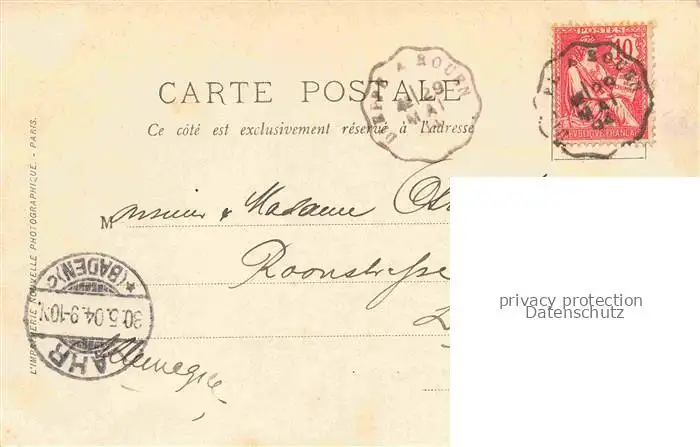 CARTE POSTALE
Ce côté est exclusivement réservé à l'adresse
DIEPPE A ROUEN
29
MAI
POSTES
10
RÉPUBLIQUE FRANÇAISE
A ROUEN
29
MAI
Monsieur & Madame
Roonstrasse
Allemagne
LAHR
30.5.04.9-10N.
*(BADEN)c*
L'IMPRIMERIE NOUVELLE PHOTOGRAPHIQUE. - PARIS.
privacy protection
Datenschutz